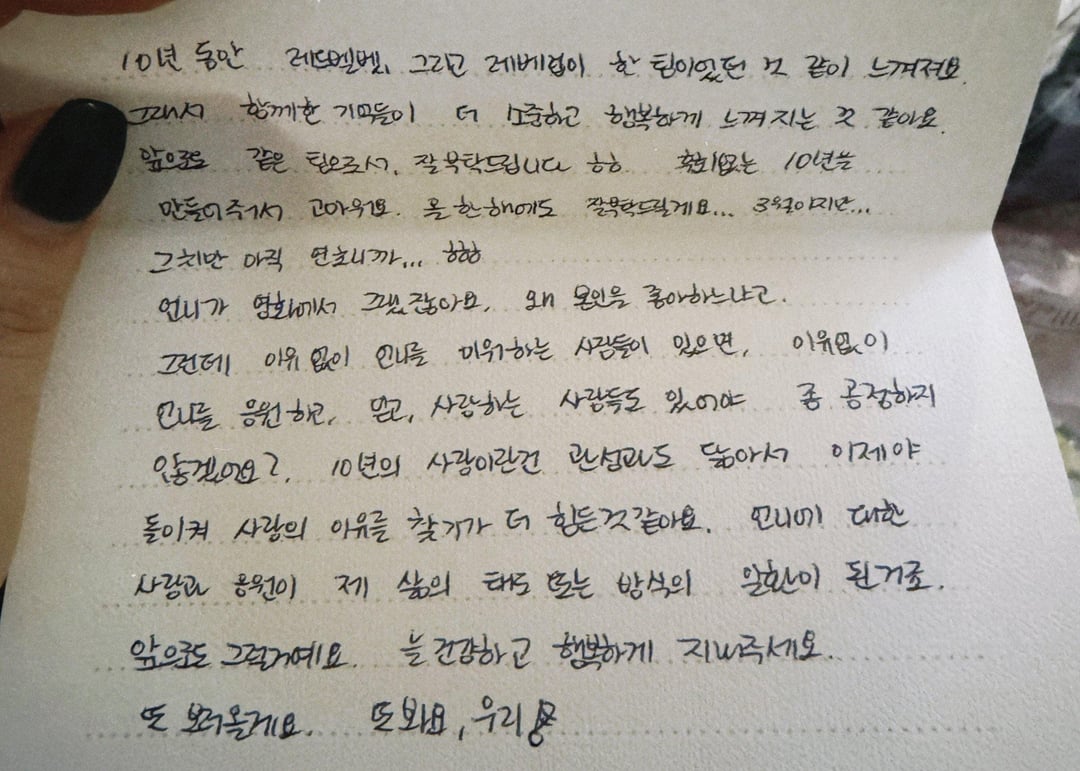 10년 동안 레드벨벳, 그리고 레베럽이 한 팀이었던 것 같이 느껴져요.
그래서 함께한 기억들이 더 소중하고 행복하게 느껴지는 것 같아요.
앞으로도 같은 팀으로서, 잘 부탁드립니다 ㅎㅎ 후회없는 10년을
만들어주셔서 고마워요. 올 한해에도 잘 부탁드릴게요... 3월이지만...
그치만 아직 연초니까... ㅎㅎㅎ
언니가 영화에서 그랬잖아요, 왜 본인을 좋아하느냐고.
그런데 이유 없이 언니를 미워하는 사람들이 있으면, 이유없이
언니를 응원하고, 믿고, 사랑하는 사람들도 있어야 좀 공정하지
않겠어요?, 10년의 사랑이란건 관성과도 닮아서 이제야
돌이켜 사랑의 이유를 찾기가 더 힘든것 같아요. 언니에 대한
사랑과 응원이 제 삶의 태도 또는 방식의 일환이 된거죠.
앞으로도 그럴거예요. 늘 건강하고 행복하게 지내주세요.
또 보러올게요. 또 봐요, 우리